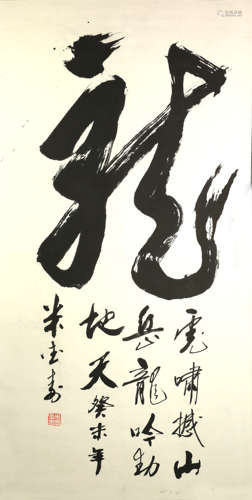 龍
虎嘯撼山
岳龍吟動
地天癸未年
米步壽